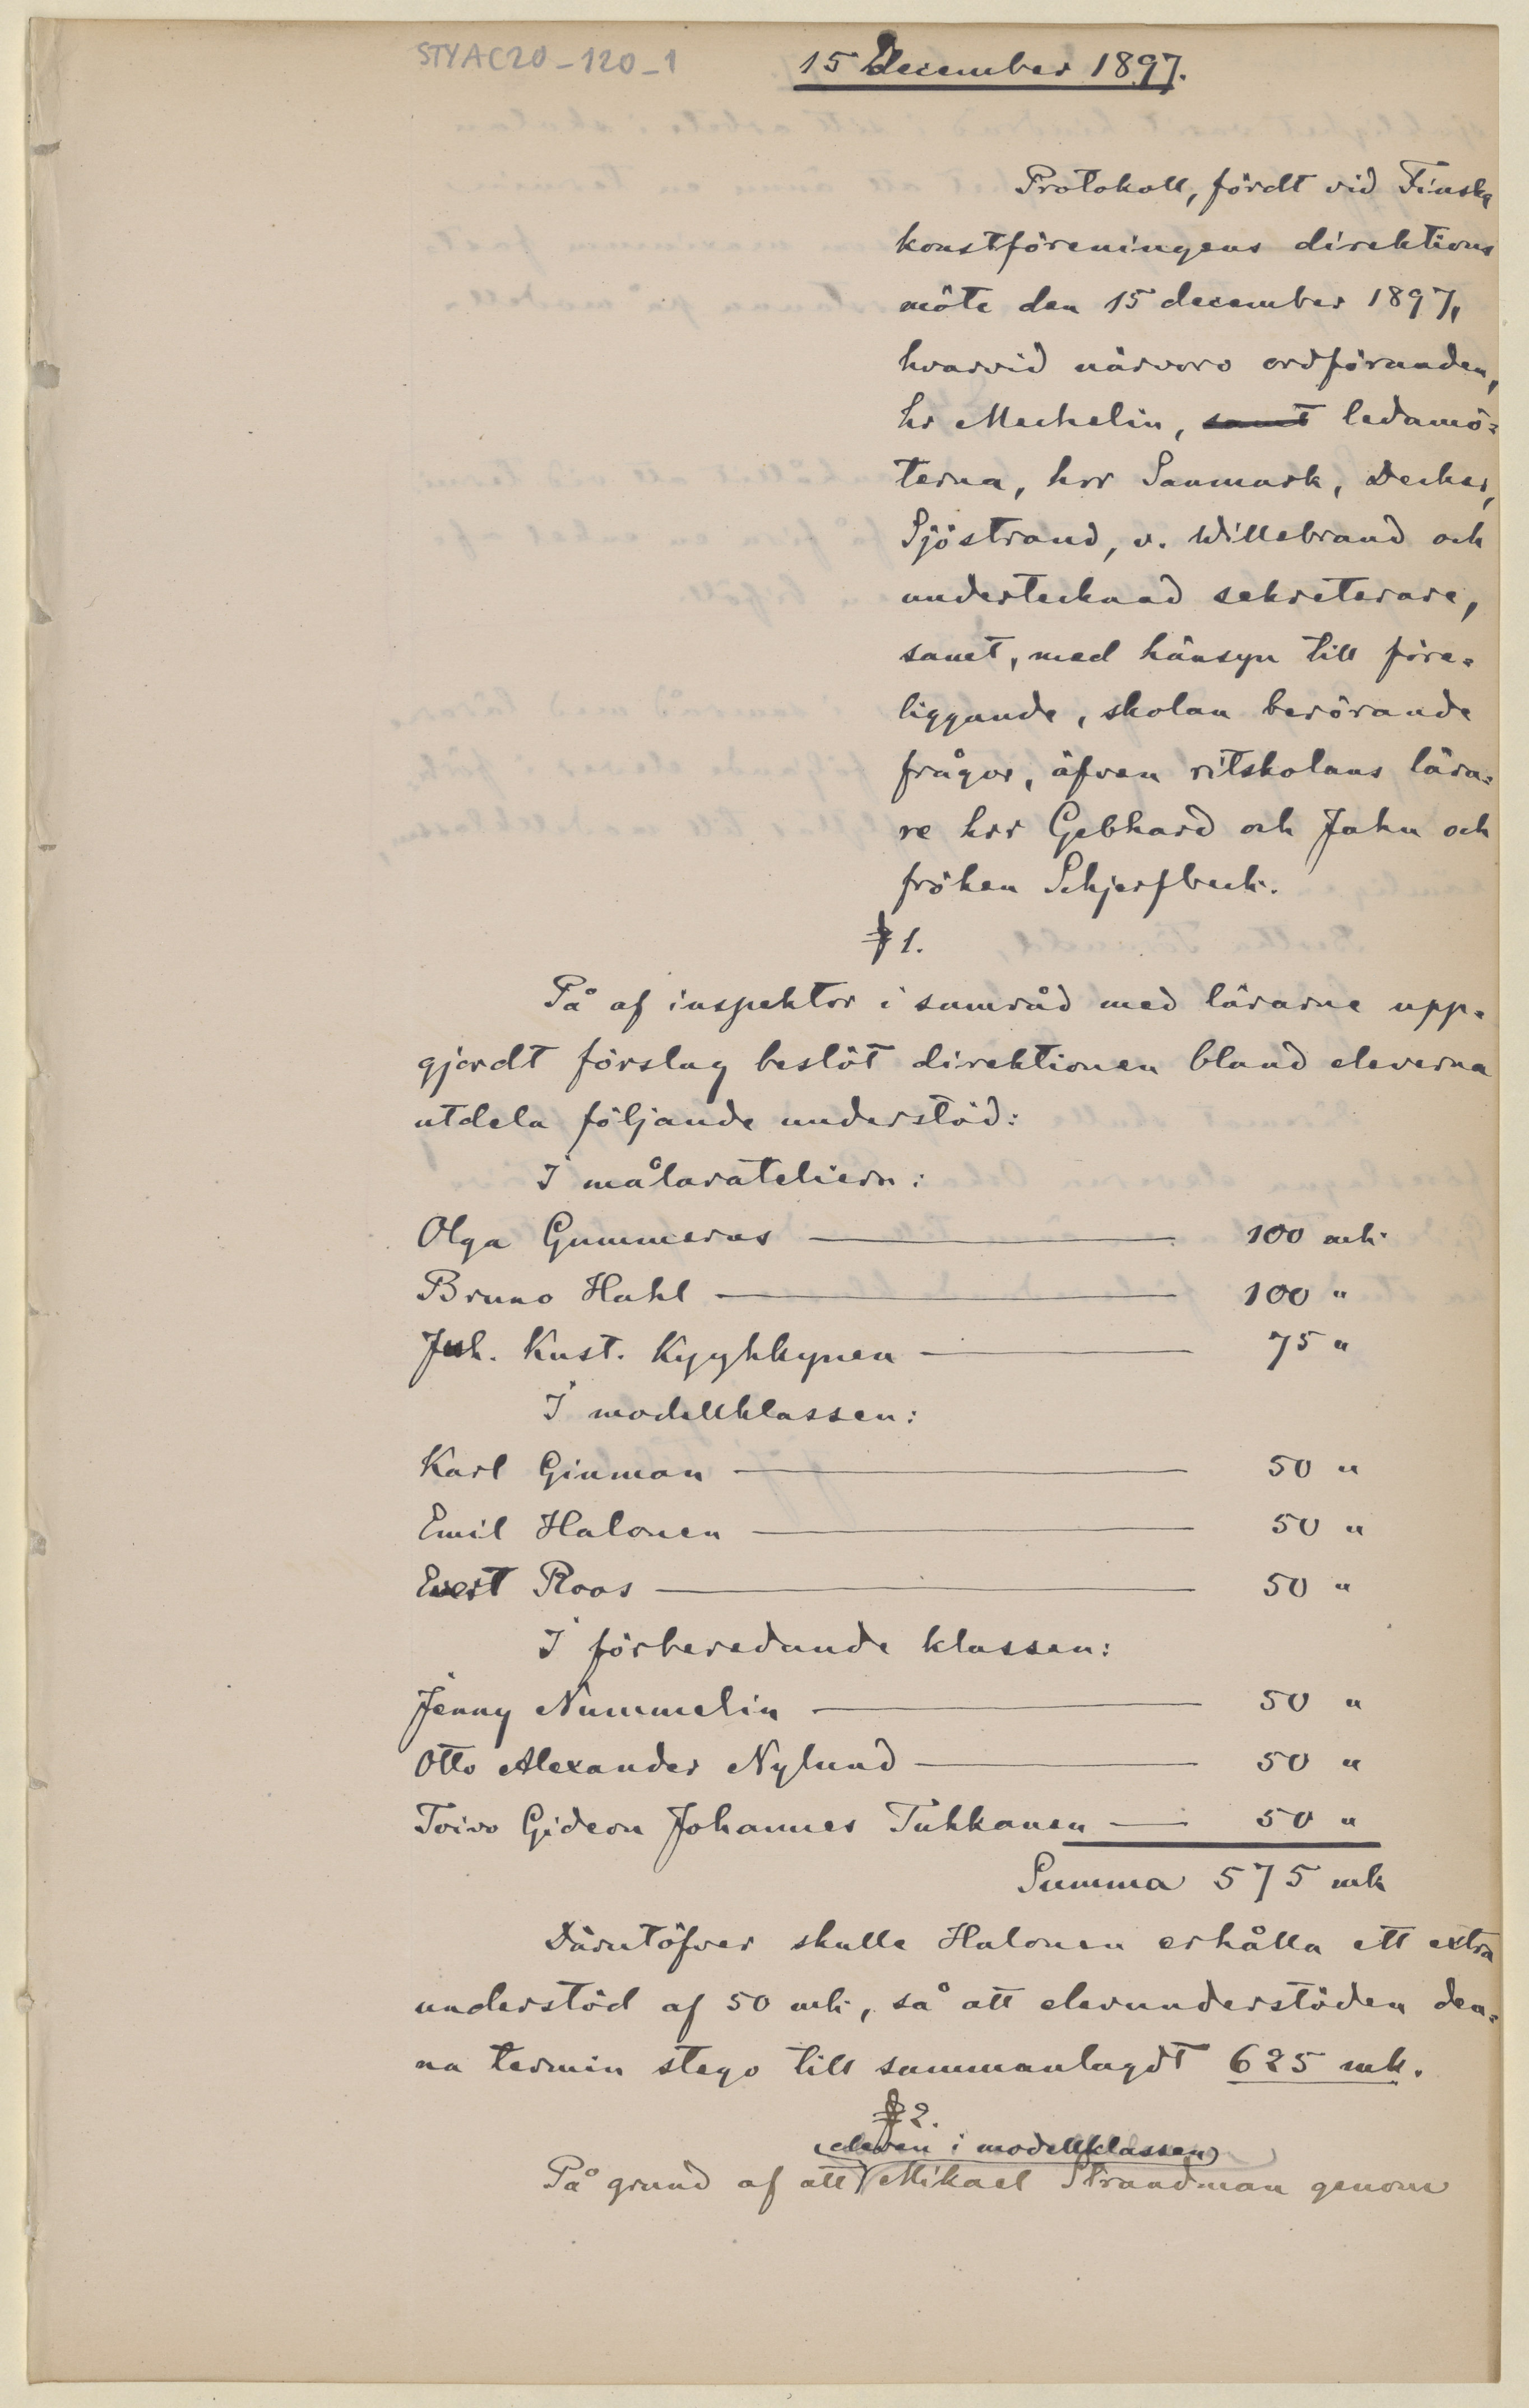 STYAC20-120-1
15 December 1897.
Protokoll, fördt vid Finska
konstföreningens direktions
möte den 15 december 1897,
hvarvid närvoro ordföranden,
hr Mechelin, samt ledamö=
terna, hrr Sanmark, Decker,
Sjöstrand, v. Willebrand och
undertecknad sekreterare,
samt, med hänsyn till före=
liggande, skolan berörande
frågor, äfven ritskolans lära=
re hrr Gebhard och Jahn och
fröken Schjerfbeck.
§ 1.
På af inspektor i samråd med lärarne upp=
gjordt förslag beslöt direktionen bland eleverna
utdela följande understöd:
I målarateliern:
Olga Gummerus — 100 mk
Bruno Hahl — 100 "
Joh. Kust. Kyyhkynen — 75 "
I modellklassen:
Karl Ginman — 50 "
Emil Halonen — 50 "
Evert Roos — 50 "
I förberedande klassen:
Jenny Nummelin — 50 "
Otto Alexander Nylund — 50 "
Toivo Gideon Johannes Tukkanen — 50 "
Summa 575 mk
Därutöfver skulle Halonen erhålla ett extra
understöd af 50 mk, så att elevunderstöden den=
na termin stego till sammanlagdt 625 mk.
§ 2.
(eleven i modellklassen)
På grund af att Mikael Strandman genom